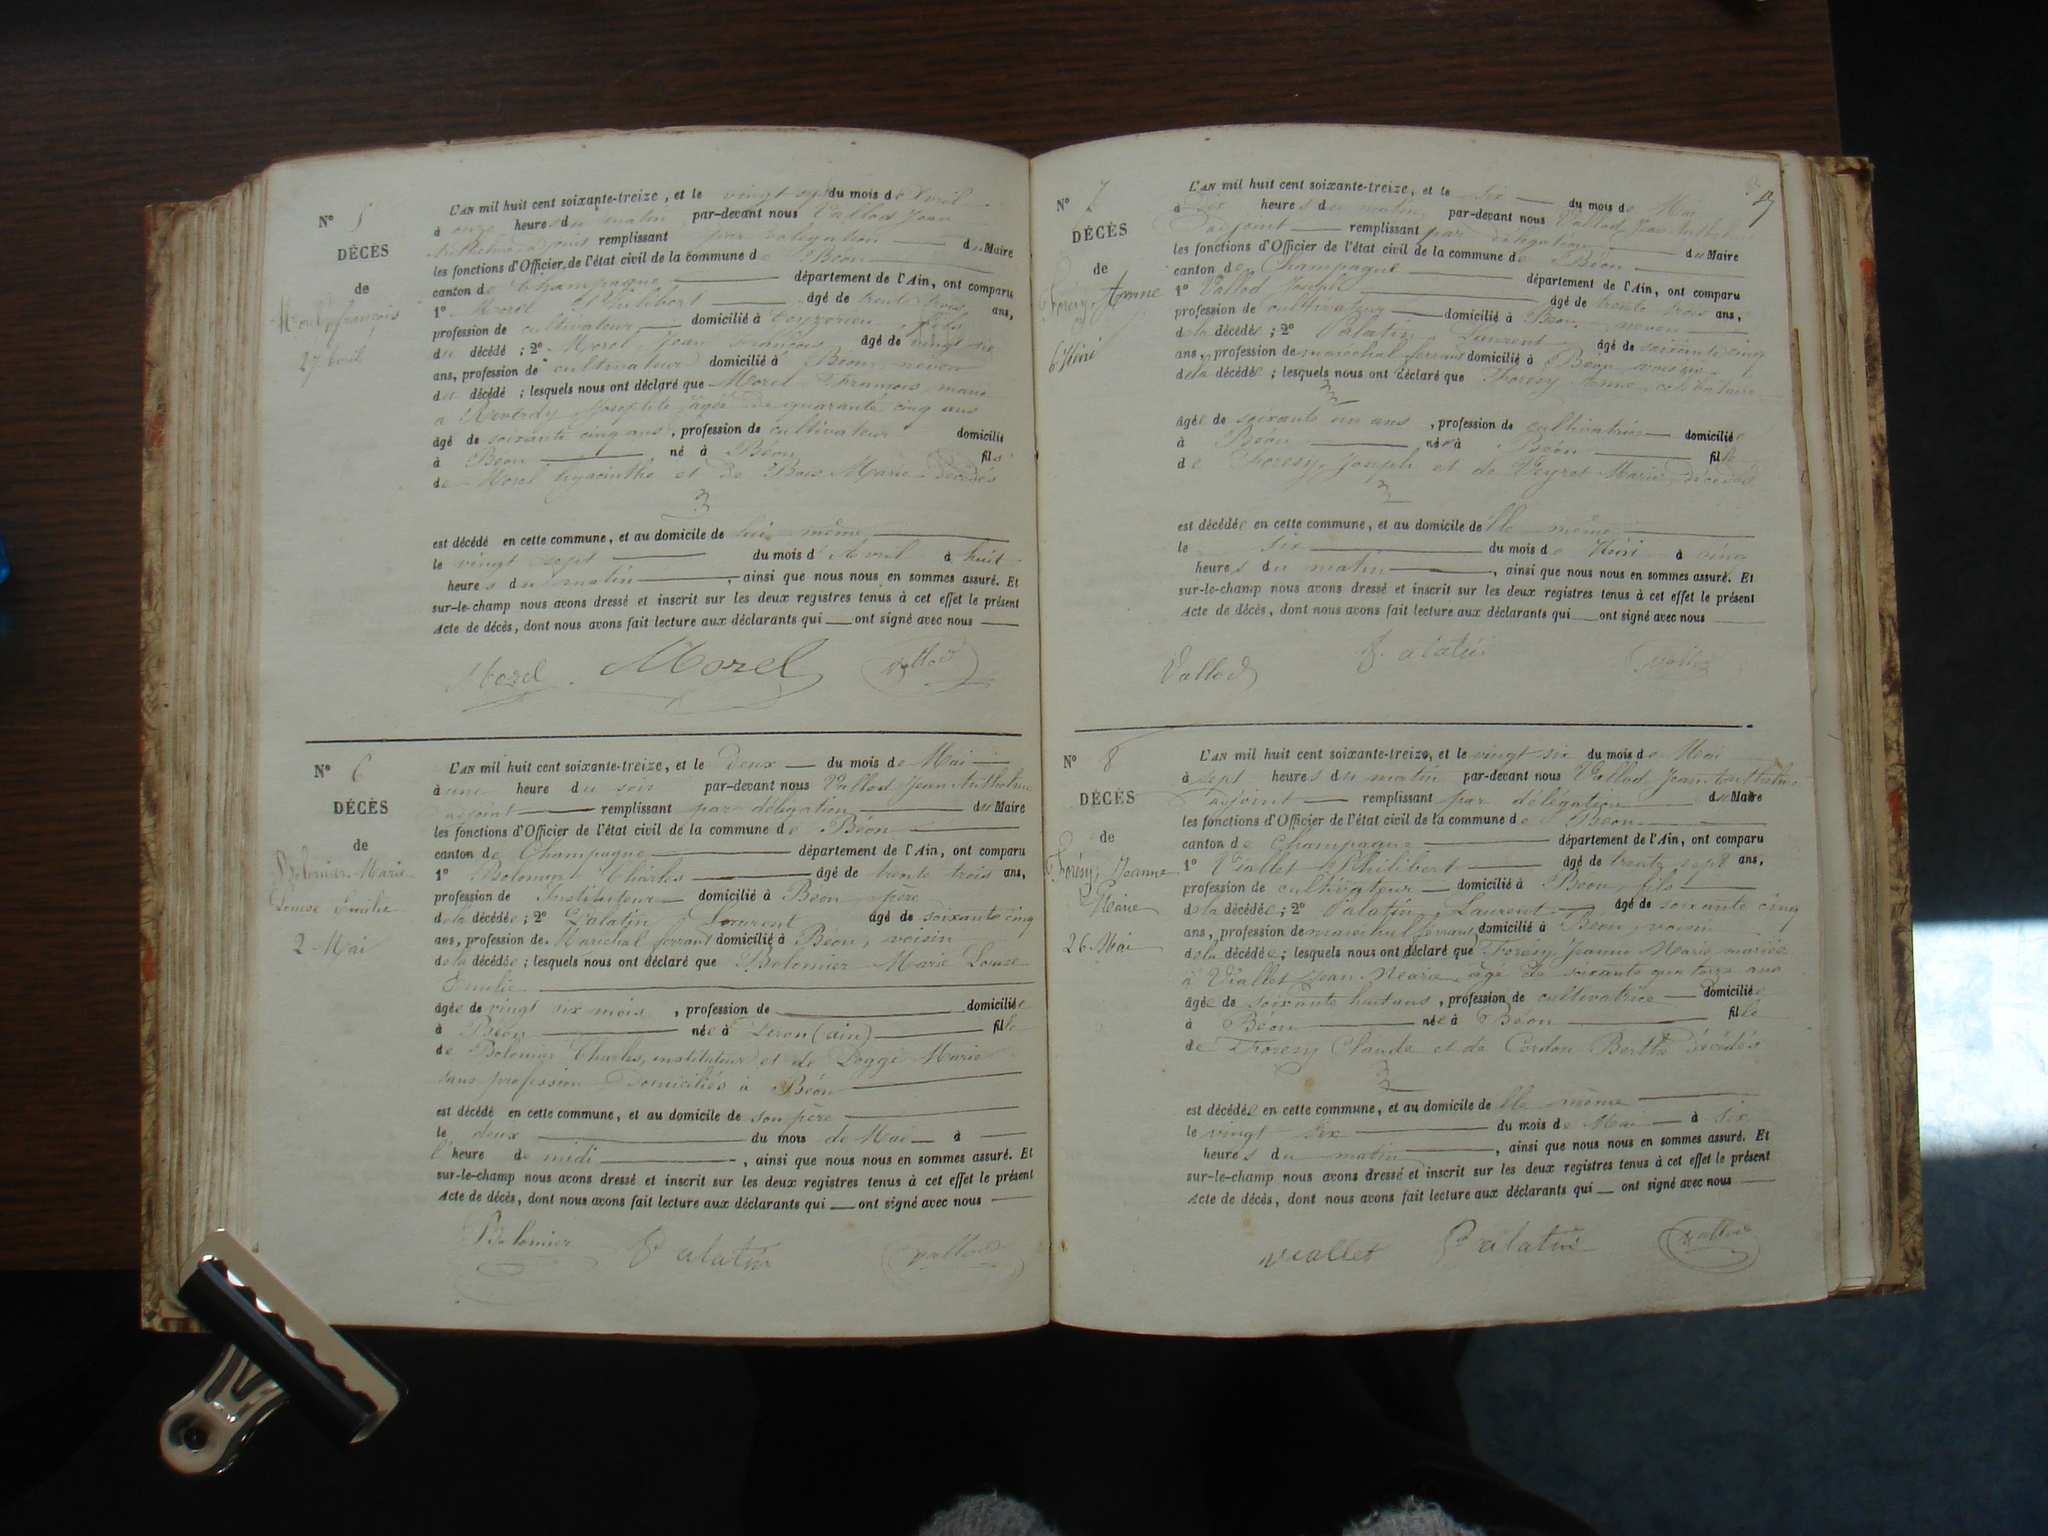 N° 5
DÉCÈS
de
Morel françois
27 avril
L'AN mil huit cent soixante-treize, et le vingt sept du mois d'Avril
à onze heures du matin par-devant nous Vallod Jean
Anthelme adjoint remplissant par délégation du Maire
les fonctions d'Officier de l'état civil de la commune de Béon
canton de Champagne département de l'Ain, ont comparu
1° Morel Philibert âgé de trente trois ans,
profession de cultivateur domicilié à fils
du décédé ; 2° Morel, Jean François âgé de vingt six
ans, profession de cultivateur domicilié à Béon, neveu
du décédé ; lesquels nous ont déclaré que Morel François, marié
à Reverdy Josephte âgée de quarante cinq ans
âgé de soixante cinq ans, profession de cultivateur domicilié
à Béon né à Béon fils
de Morel hyacinthe et de Bois Marie décédés
est décédé en cette commune, et au domicile de lui même
le vingt sept du mois d'Avril à huit
heures du matin, ainsi que nous nous en sommes assuré. Et
sur-le-champ nous avons dressé et inscrit sur les deux registres tenus à cet effet le présent
Acte de décès, dont nous avons fait lecture aux déclarants qui ont signé avec nous
Morel Morel Vallod
N° 6
DÉCÈS
de
Bolomier Marie
Louise Emilie
2 Mai
L'AN mil huit cent soixante-treize, et le deux du mois de Mai
à une heure du soir par-devant nous Vallod Jean Anthelme
adjoint remplissant par délégation du Maire
les fonctions d'Officier de l'état civil de la commune de Béon
canton de Champagne département de l'Ain, ont comparu
1° Bolomier Charles âgé de trente trois ans,
profession de Instituteur domicilié à Béon, père
de la décédée ; 2° Palatin, Laurent âgé de soixante cinq
ans, profession de Maréchal ferrant domicilié à Béon, voisin
de la décédée ; lesquels nous ont déclaré que Bolomier Marie Louise
Emilie
âgée de vingt six mois, profession de domiciliée
à Béon née à (ain) fille
de Bolomier Charles, instituteur et de Marie
sans profession domiciliés à Béon
est décédé en cette commune, et au domicile de son père
le deux du mois de Mai à
l'heure de midi, ainsi que nous nous en sommes assuré. Et
sur-le-champ nous avons dressé et inscrit sur les deux registres tenus à cet effet le présent
Acte de décès, dont nous avons fait lecture aux déclarants qui ont signé avec nous
Bolomier Palatin Vallod
N° 7
DÉCÈS
de
Forésy Anne
6 Mai
L'AN mil huit cent soixante-treize, et le six du mois de Mai
à dix heures du matin par-devant nous Vallod Jean Anthelme
adjoint remplissant par délégation du Maire
les fonctions d'Officier de l'état civil de la commune de Béon
canton de Champagne département de l'Ain, ont comparu
1° Vallod Joseph âgé de trente trois ans,
profession de cultivateur domicilié à Béon, neveu
de la décédée ; 2° Palatin, Laurent âgé de soixante cinq
ans, profession de maréchal ferrant domicilié à Béon, voisin
de la décédée ; lesquels nous ont déclaré que Forésy Anne, célibataire
âgée de soixante un ans, profession de cultivatrice domiciliée
à Béon née à Béon fille
de Forésy, Joseph et de Peyret Marie, décédés
est décédée en cette commune, et au domicile de elle même
le six du mois de Mai à cinq
heures du matin, ainsi que nous nous en sommes assuré. Et
sur-le-champ nous avons dressé et inscrit sur les deux registres tenus à cet effet le présent
Acte de décès, dont nous avons fait lecture aux déclarants qui ont signé avec nous
Vallod Palatin Vallod
N° 8
DÉCÈS
de
Forésy Jeanne
Marie
26 Mai
L'AN mil huit cent soixante-treize, et le vingt six du mois de Mai
à sept heures du matin par-devant nous Vallod Jean Anthelme
adjoint remplissant par délégation du Maire
les fonctions d'Officier de l'état civil de la commune de Béon
canton de Champagne département de l'Ain, ont comparu
1° Viallet Philibert âgé de trente sept ans,
profession de cultivateur domicilié à Béon, fils
de la décédée ; 2° Palatin, Laurent âgé de soixante cinq
ans, profession de maréchal ferrant domicilié à Béon, voisin
de la décédée ; lesquels nous ont déclaré que Forésy Jeanne Marie mariée
à Viallet Jean Marie, âgé de soixante quatorze ans
âgée de soixante huit ans, profession de cultivatrice domiciliée
à Béon née à Béon fille
de Forésy Claude et de Cordon Berthe décédés
est décédée en cette commune, et au domicile de elle même
le vingt six du mois de Mai à six
heures du matin, ainsi que nous nous en sommes assuré. Et
sur-le-champ nous avons dressé et inscrit sur les deux registres tenus à cet effet le présent
Acte de décès, dont nous avons fait lecture aux déclarants qui ont signé avec nous
Viallet Palatin Vallod